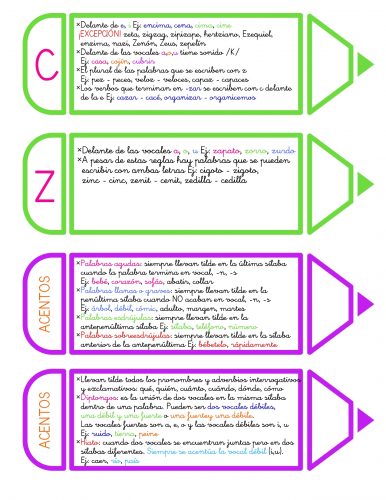 C
*Delante de e, i Ej: encima, cena, cima, cine
¡EXCEPCIÓN! zeta, zigzag, zipizape, hertziano, Ezequiel,
enzima, nazi, Zenón, Zeus, zepelín
*Delante de las vocales a,o,u tiene sonido /K/
Ej: casa, cojín, cubris
*El plural de las palabras que se escriben con z
Ej: pez - peces, veloz - veloces, capaz - capaces
*Los verbos que terminan en -zar se escriben con c delante
de la e Ej: cazar - cacé, organizar - organicemos
Z
*Delante de las vocales a, o, u Ej: zapato, zorro, zurdo
*A pesar de estas reglas hay palabras que se pueden
escribir con ambas letras Ej: cigoto - zigoto,
zinc - cinc, zenit - cenit, zedilla - cedilla
ACENTOS
*Palabras agudas: siempre llevan tilde en la última sílaba
cuando la palabra termina en vocal, -n, -s
Ej: bebé, corazón, sofás, abatir, collar
*Palabras llanas o graves: siempre llevan tilde en la
penúltima sílaba cuando NO acaban en vocal, -n, -s
Ej: árbol, débil, cómic, adulto, margen, martes
*Palabras esdrújulas: siempre llevan tilde en la
antepenúltima sílaba Ej: sílaba, teléfono, número
*Palabras sobreesdrújulas: siempre llevan tilde en la sílaba
anterior de la antepenúltima Ej: bébetelo, rápidamente
ACENTOS
*Llevan tilde todos los pronombres y adverbios interrogativos
y exclamativos: qué, quién, cuánto, cuándo, dónde, cómo
*Diptongos: es la unión de dos vocales en la misma sílaba
dentro de una palabra. Pueden ser dos vocales débiles,
una débil y una fuerte o una fuertey una débile.
Las vocales fuertes son a, e, o y las vocales débiles son i, u
Ej: ruido, tierra, peine
*Hiato: cuando dos vocales se encuentran juntas pero en dos
sílabas diferentes. Siempre se acentúa la vocal débil (i,u).
Ej: caer, río, país